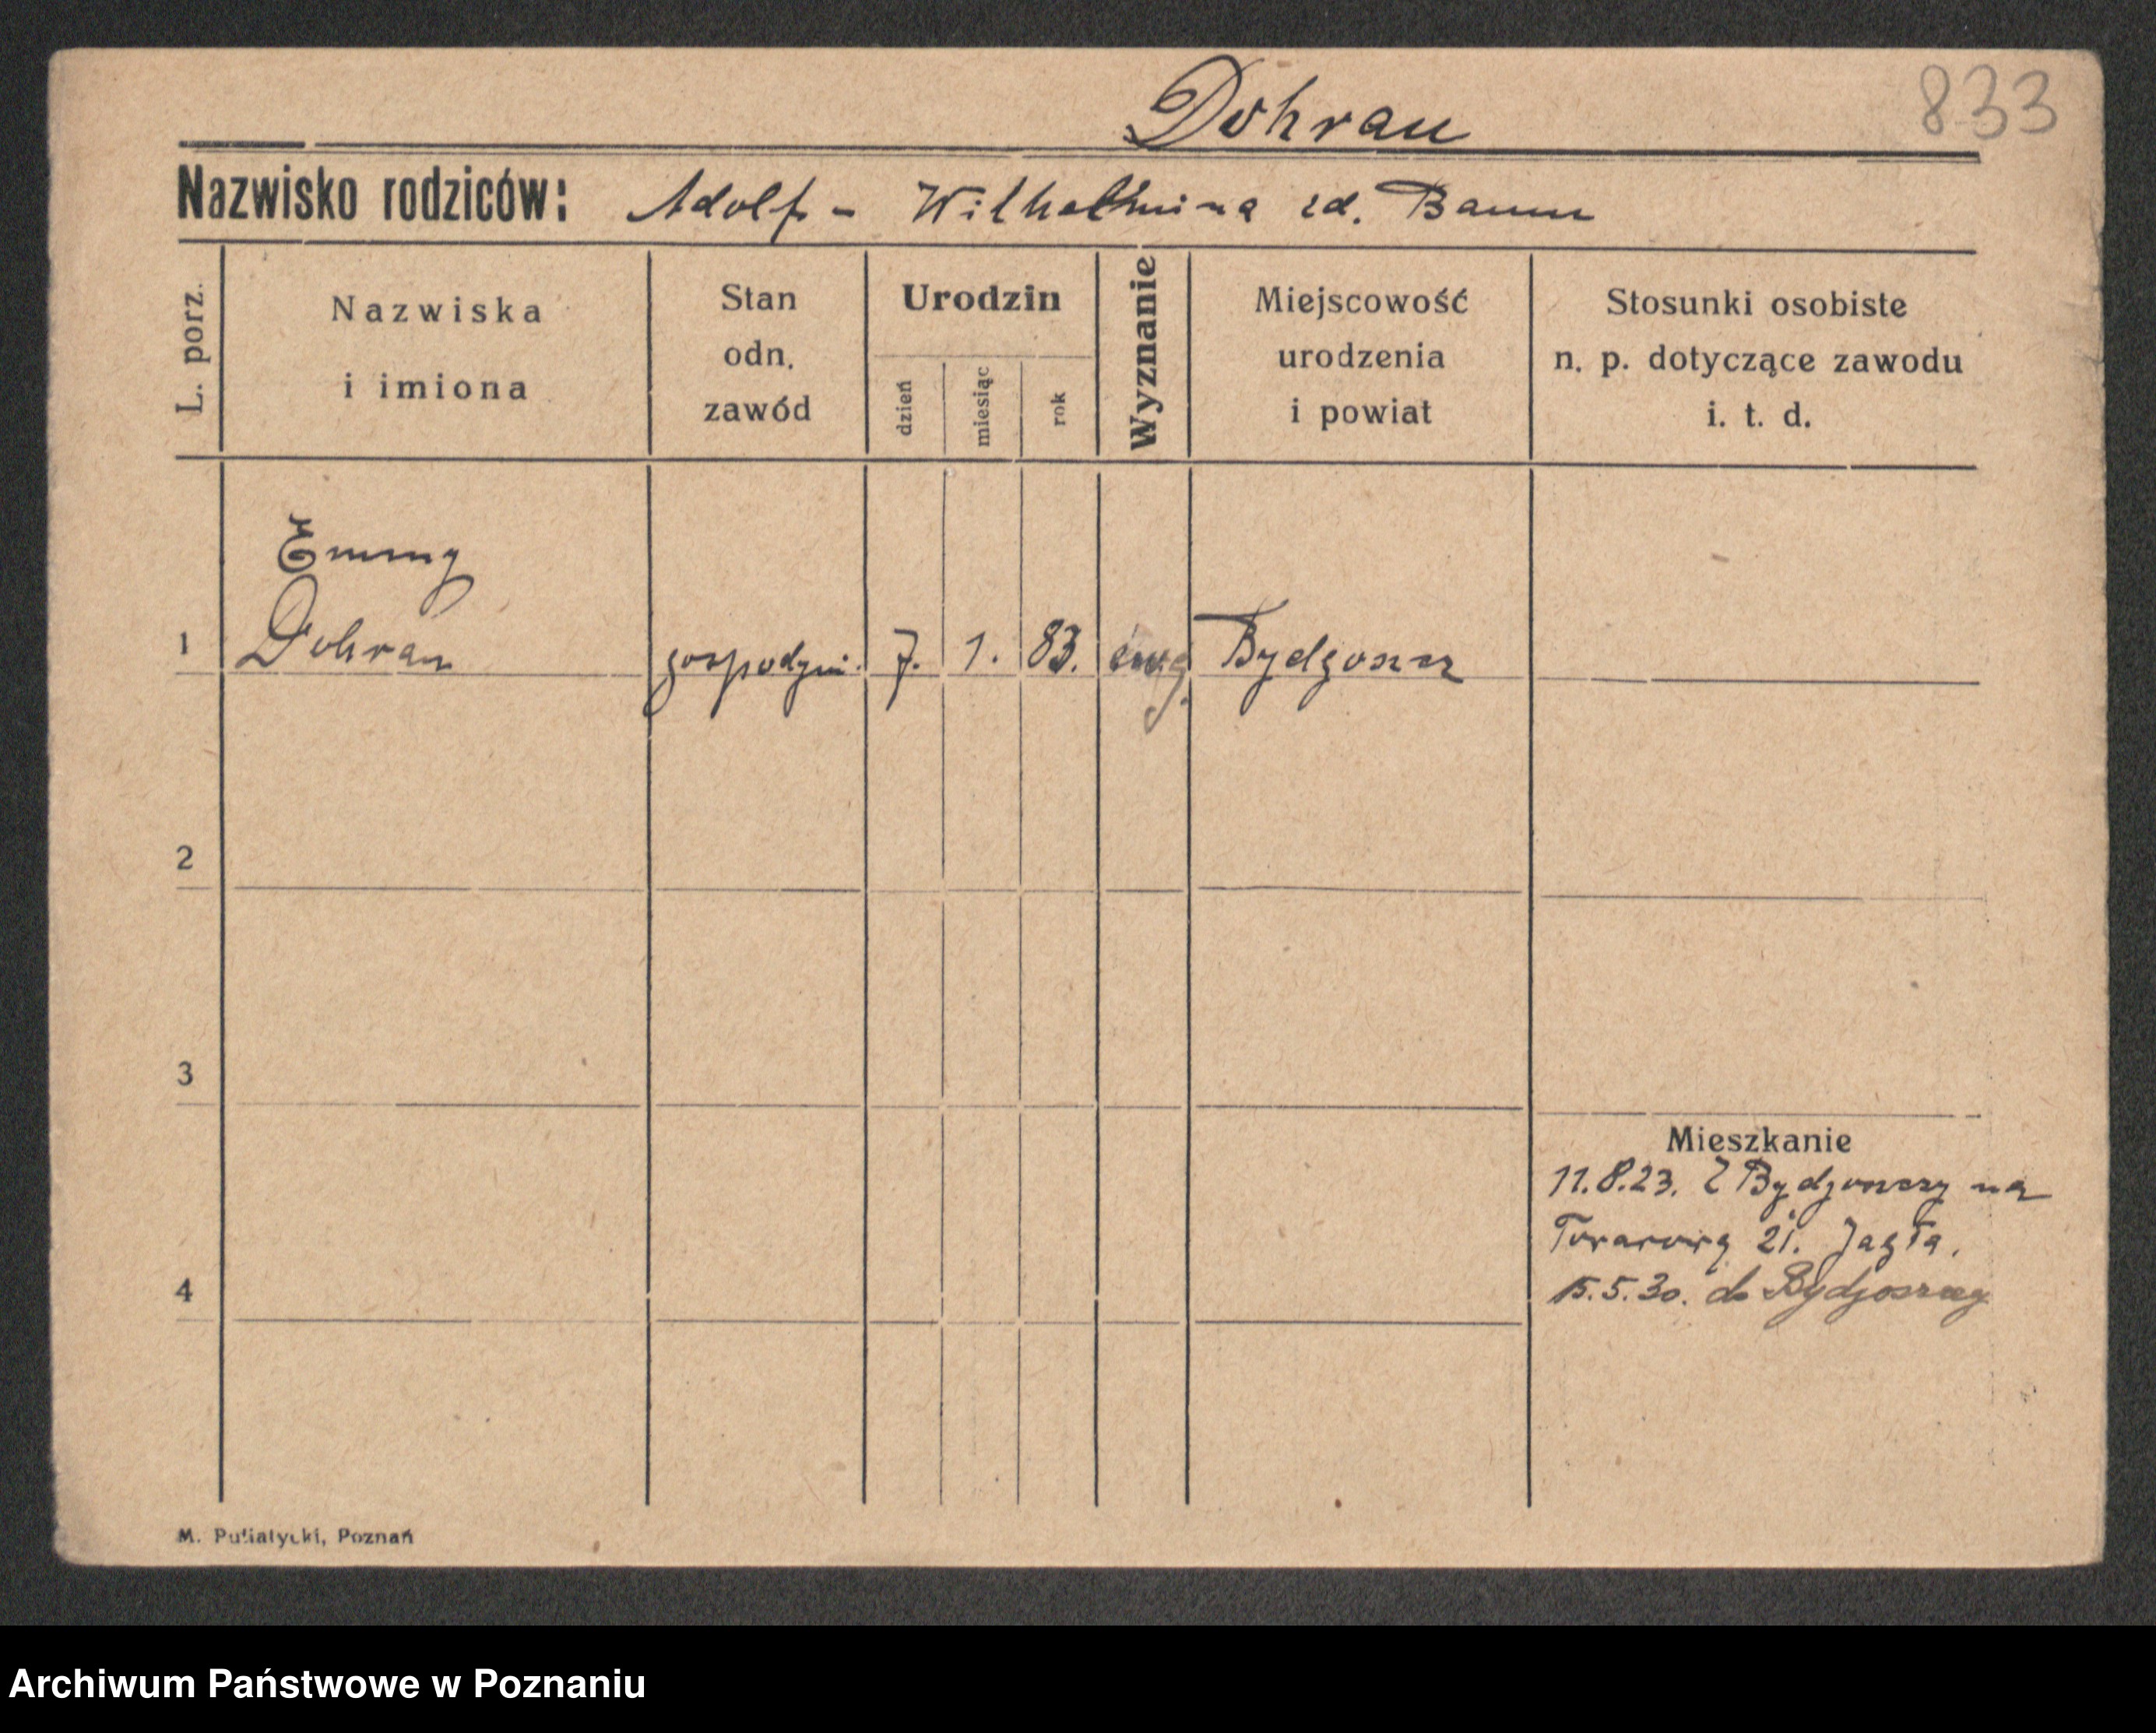 833
Dohrau
Nazwisko rodziców: Adolf - Wilhelmina zd. Baum
L. porz.
Nazwiska
i imiona
Stan
odn.
zawód
Urodzin
dzień
miesiąc
rok
Wyznanie
Miejscowość
urodzenia
i powiat
Stosunki osobiste
n. p. dotyczące zawodu
i. t. d.
Emmy
1 Dohrau gospodyni. 7. 1. 83. ewg. Bydgoszcz
2
3
Mieszkanie
11.8.23. Z Bydgoszczy na
21. Jagła.
4
15.5.30. do Bydgoszczy
M. Putiatycki, Poznań
Archiwum Państwowe w Poznaniu